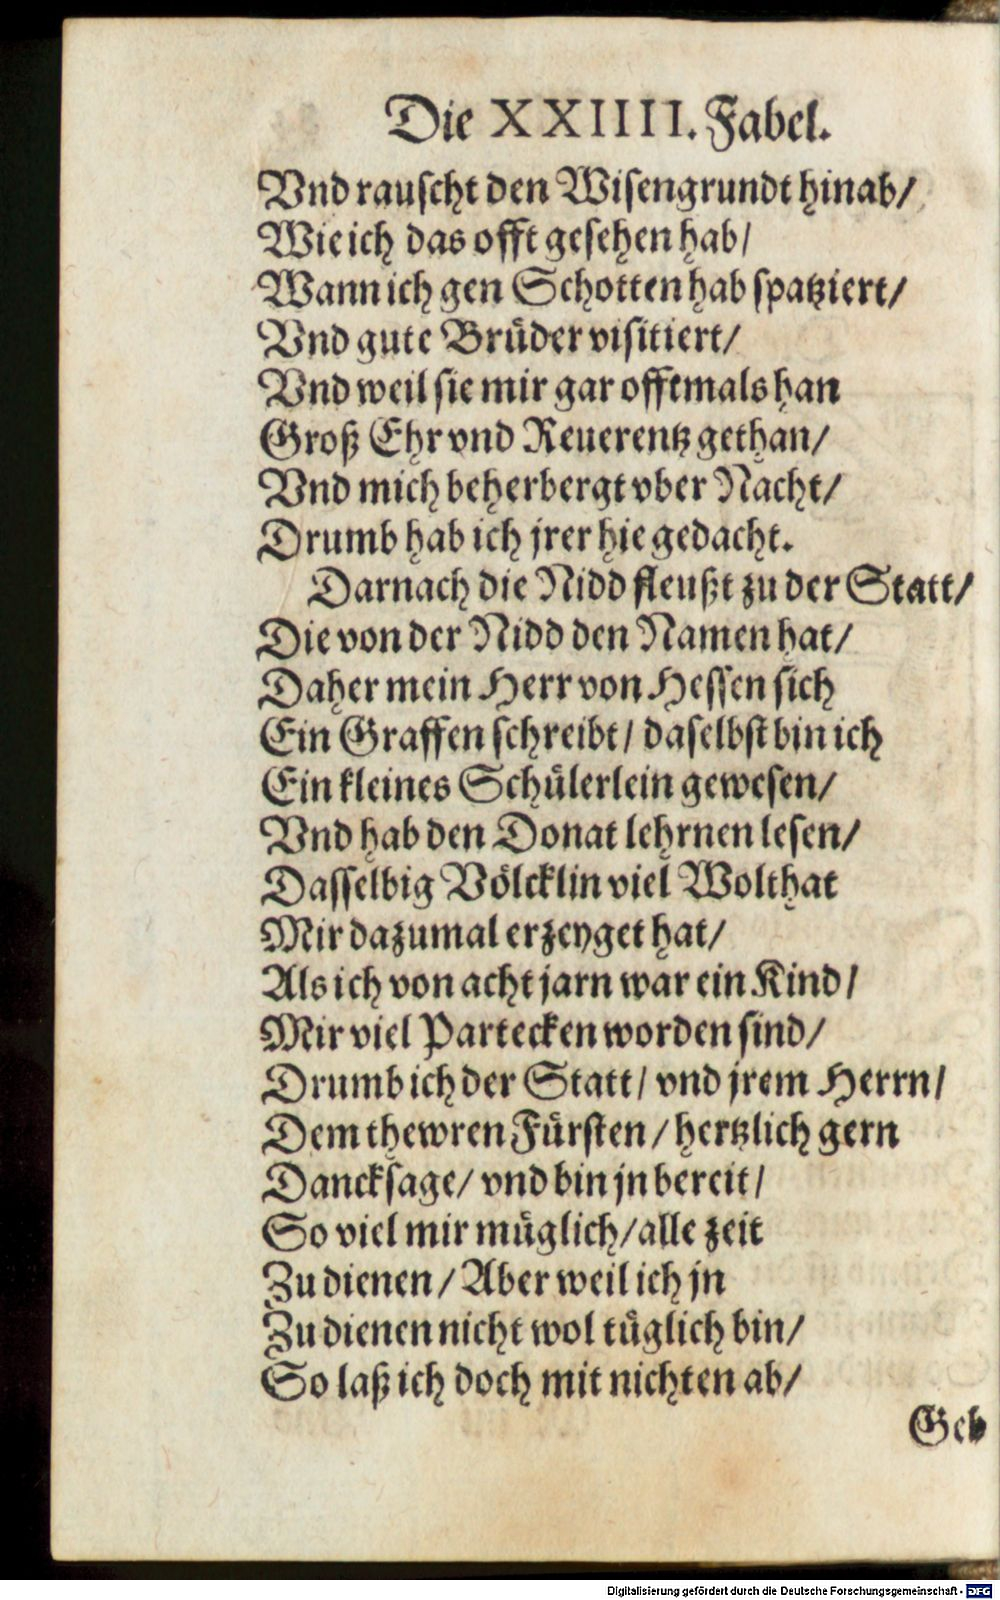 Die XXIIII. Fabel.
Vnd rauscht den Wisengrundt hinab/
Wie ich das offt gesehen hab/
Wann ich gen Schotten hab spatziert/
Vnd gute Brüder visitiert/
Vnd weil sie mir gar offtmals han
Groß Ehr vnd Reuerentz gethan/
Vnd mich beherbergt vber Nacht/
Drumb hab ich jrer hie gedacht.
Darnach die Nidd fleußt zu der Statt/
Die von der Nidd den Namen hat/
Daher mein Herr von Hessen sich
Ein Graffen schreibt/ daselbst bin ich
Ein kleines Schülerlein gewesen/
Vnd hab den Donat lehrnen lesen/
Dasselbig Völcklin viel Wolthat
Mir dazumal erzeyget hat/
Als ich von acht jarn war ein Kind/
Mir viel Partecken worden sind/
Drumb ich der Statt/ vnd jrem Herrn/
Dem thewren Fürsten/ hertzlich gern
Dancksage/ vnd bin jn bereit/
So viel mir müglich/ alle zeit
Zu dienen/ Aber weil ich jn
Zu dienen nicht wol tüglich bin/
So laß ich doch mit nichten ab/
Geb
Digitalisierung gefördert durch die Deutsche Forschungsgemeinschaft - DFG